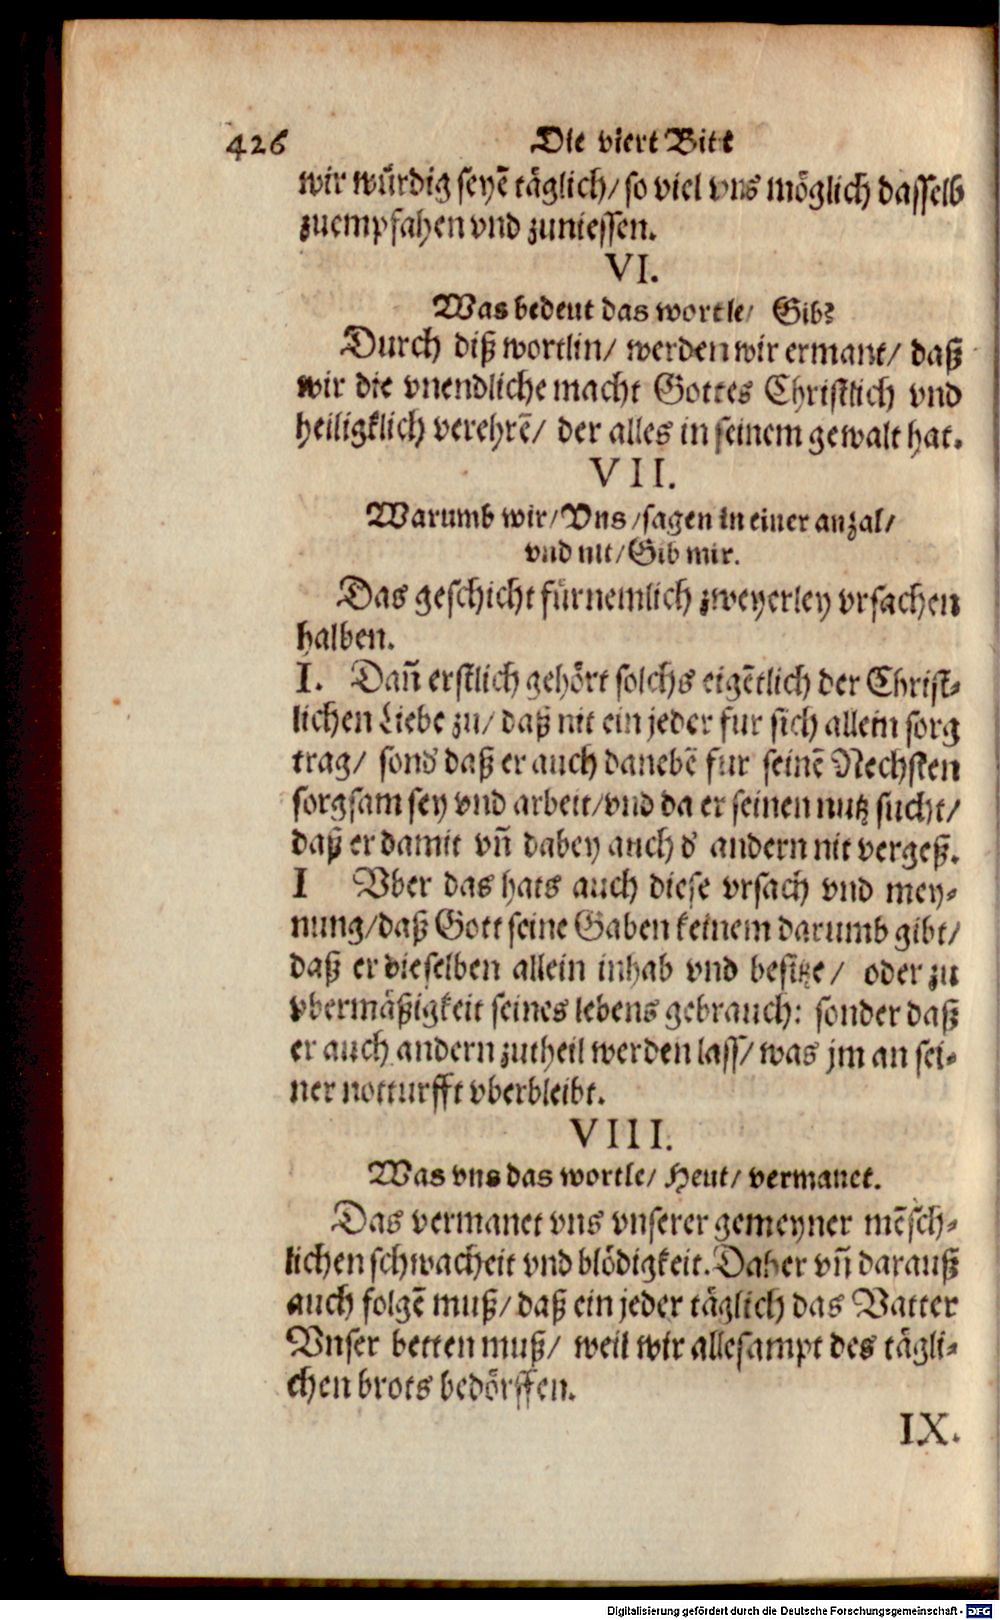 426 Die viert Bitt
wir würdig seyẽ täglich/ so viel vns möglich dasselb
zuempfahen vnd zuniessen.
VI.
Was bedeut das wortle/ Gib?
Durch diß wortlin/ werden wir ermant/ daß
wir die vnendliche macht Gottes Christlich vnd
heiligklich verehrẽ/ der alles in seinem gewalt hat.
VII.
Warumb wir/Vns/sagen in einer anzal/
vnd nit/Gib mir.
Das geschicht fürnemlich zweyerley vrsachen
halben.
I. Dañ erstlich gehört solchs eigẽtlich der Christ-
lichen Liebe zu/ daß nit ein jeder fur sich allein sorg
trag/ sond daß er auch danebẽ fur seinẽ Nechsten
sorgsam sey vnd arbeit/vnd da er seinen nutz sucht/
daß er damit vñ dabey auch d andern nit vergeß.
I Vber das hats auch diese vrsach vnd mey-
nung/daß Gott seine Gaben keinem darumb gibt/
daß er dieselben allein inhab vnd besitze/ oder zu
vbermäßigkeit seines lebens gebrauch: sonder daß
er auch andern zutheil werden lass/ was jm an sei-
ner notturfft vberbleibt.
VIII.
Was vns das wortle/ Heut/ vermanet.
Das vermanet vns vnserer gemeyner mẽsch-
lichen schwacheit vnd blödigkeit. Daher vñ darauß
auch folgẽ muß/ daß ein jeder täglich das Vatter
Vnser betten muß/ weil wir allesampt des tägli-
chen brots bedörffen.
IX.
Digitalisierung gefördert durch die Deutsche Forschungsgemeinschaft - DFG